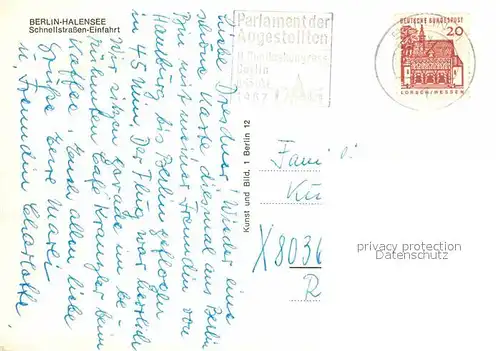 BERLIN-HALENSEE
Schnellstraßen-Einfahrt
Liebe Dresdner! Wieder eine
schöne Karte diesmal aus Berlin
Bin mit meiner Freundin von
Hamburg bis Berlin geflogen
in 45 min. Der Flug war herrlich
Wir sitzen gerade im
Café Kranzler beim
Kaffee. Euch allen liebe
Grüße Eure
u. Freundin Charlotte
Kunst und Bild, 1 Berlin 12
Parlament der
Angestellten
9. Bundeskongress
Berlin
1967 DAG
DEUTSCHE BUNDESPOST
20
LORSCH/HESSEN
Fami
Kü
X8036
R
privacy protection
Datenschutz